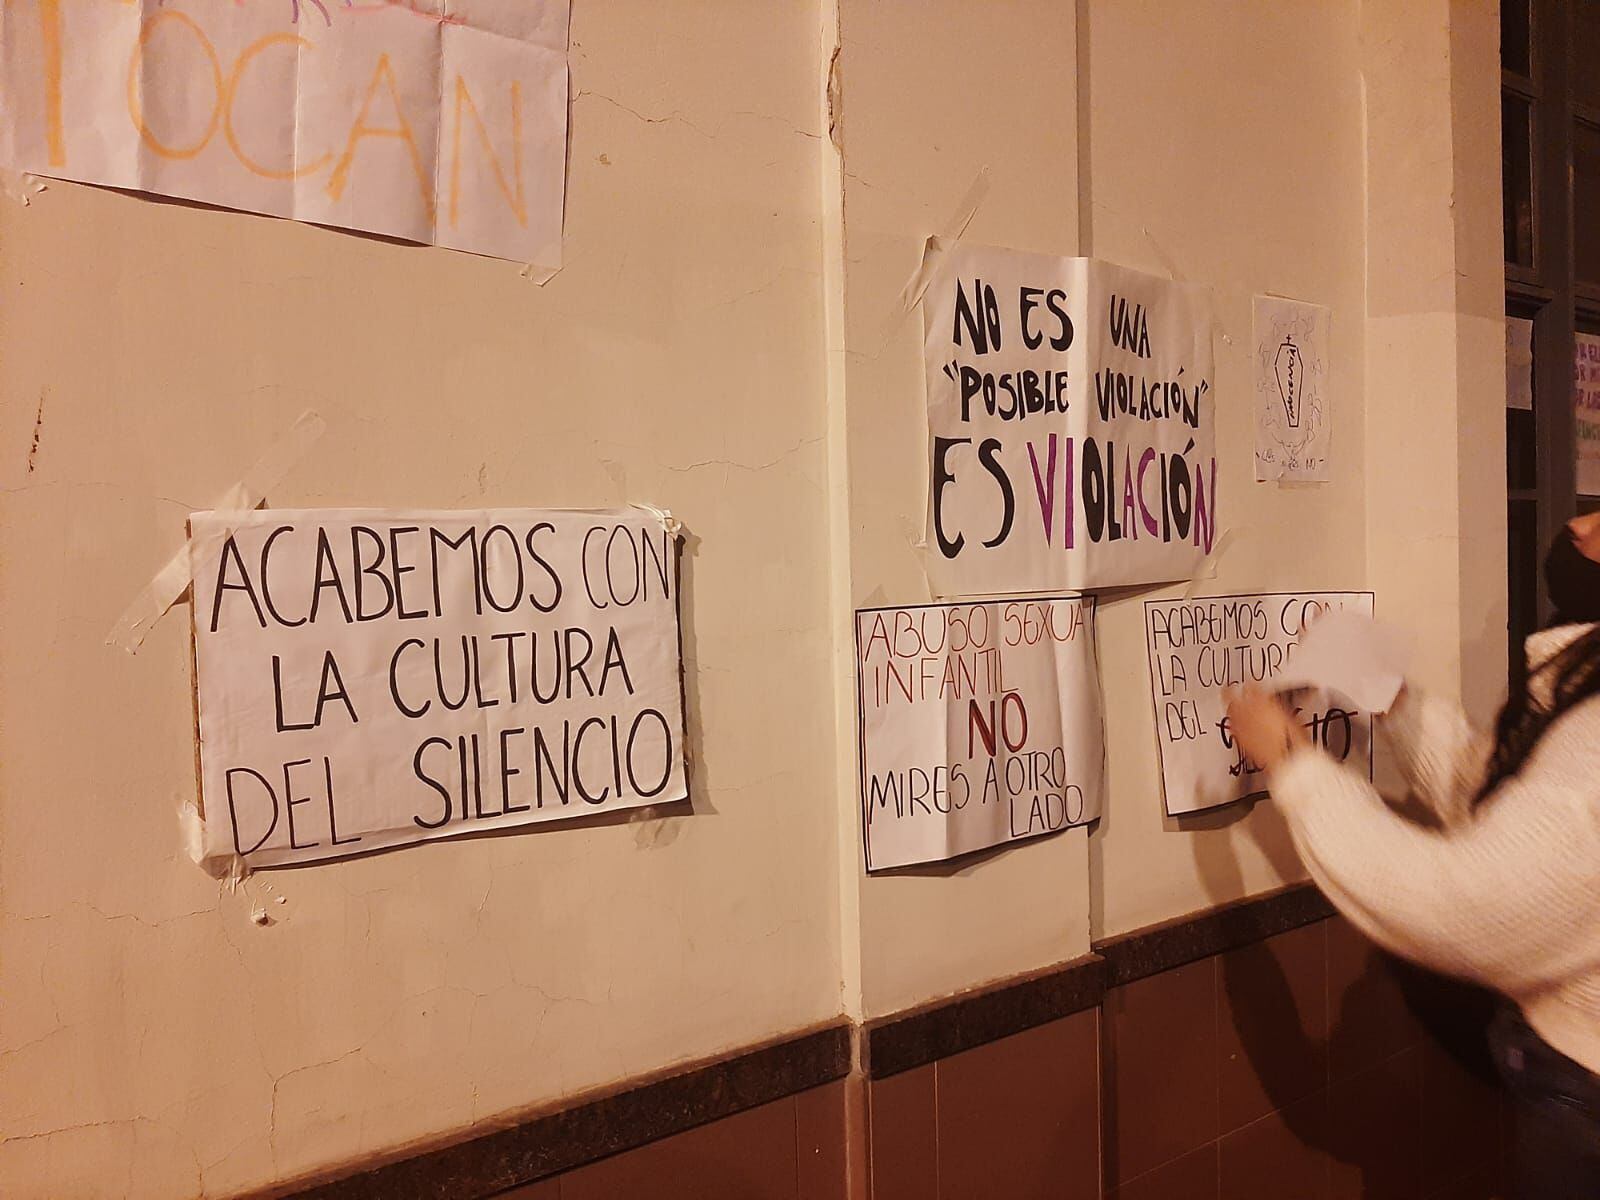 TOCAN
ACABEMOS CON
LA CULTURA
DEL SILENCIO
NO ES UNA
"POSIBLE VIOLACIÓN"
ES VIOLACIÓN
INOCENCIA
ABUSO SEXUA
INFANTIL
NO
MIRES A OTRO
LADO
ACABEMOS CON
LA CULTUR
DEL